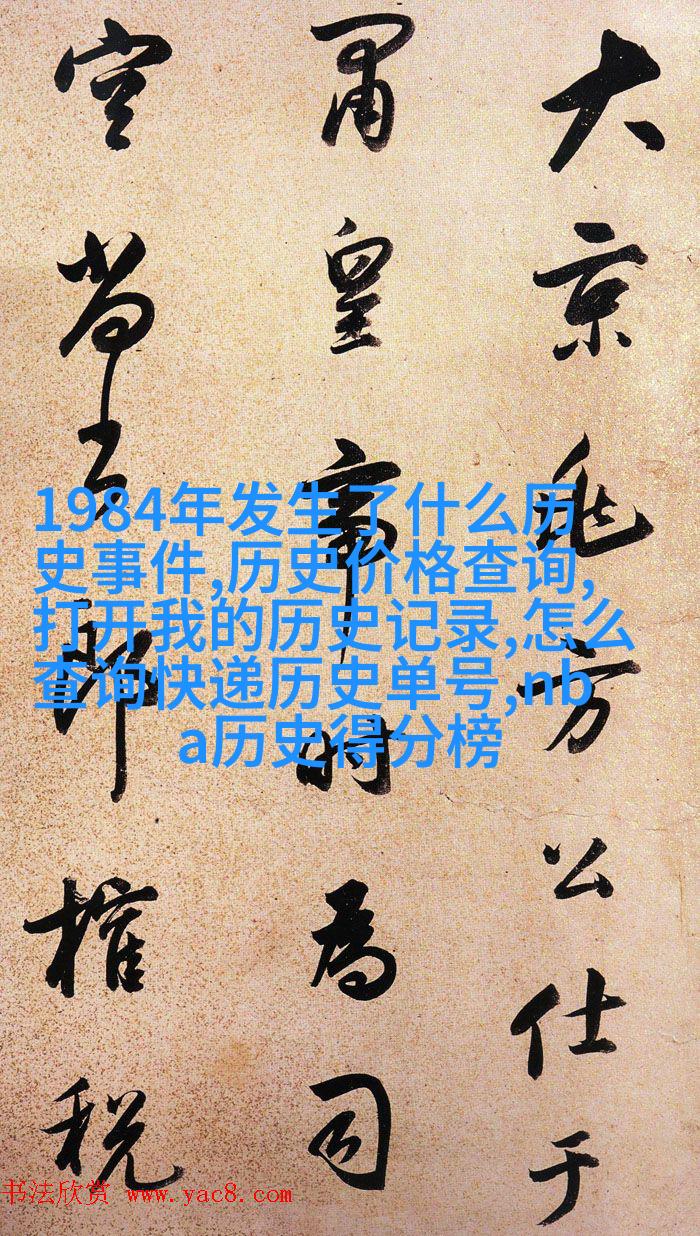 大京兆方公仕于
肅皇帝时為司
空尚書郎榷税
1984年发生了什么历
史事件,历史价格查询,
打开我的历史记录,怎么
查询快递历史单号,nb
a历史得分榜
书法欣赏 www.yac8.com